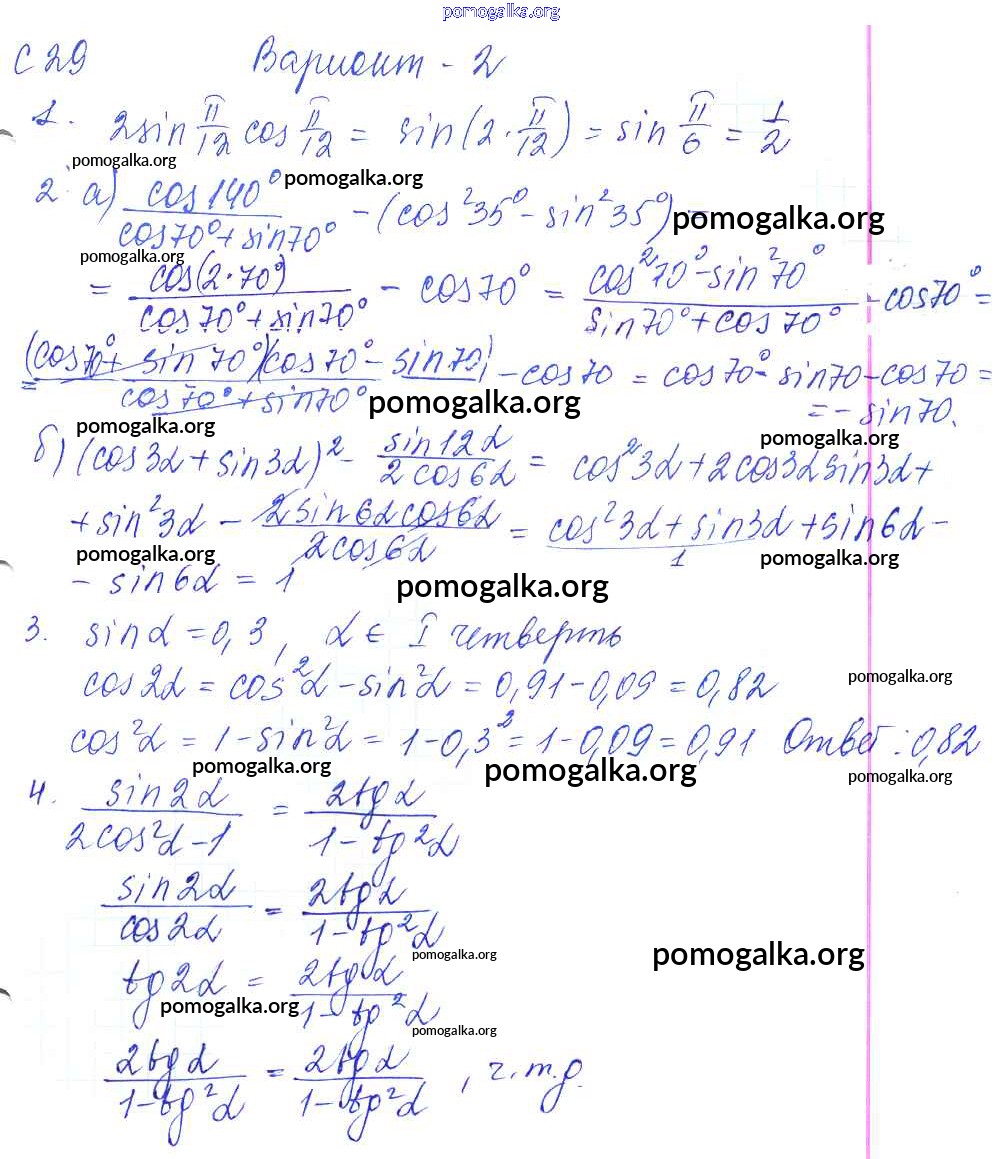 pomogalka.org
С 29 Вариант - 2
1. 2sin π/12 cos π/12 = sin(2·π/12) = sin π/6 = 1/2
pomogalka.org
2. а) cos140°/(cos70°+sin70°) - (cos²35° - sin²35°) =
pomogalka.org pomogalka.org
pomogalka.org
= cos(2·70°)/(cos70°+sin70°) - cos70° = (cos²70°-sin²70°)/(sin70°+cos70°) - cos70° =
= (cos70°+ sin70°)(cos70°- sin70)/(cos70°+sin70°) - cos70 = cos70°- sin70-cos70 =
pomogalka.org
= - sin70.
pomogalka.org pomogalka.org
б) (cos3α+sin3α)² - sin12α/(2cos6α) = cos²3α+2cos3αsin3α+
+ sin²3α - 2sin6αcos6α/(2cos6α) = cos²3α+sin3α+sin6α-
1
pomogalka.org pomogalka.org
- sin6α = 1
pomogalka.org
3. sinα=0,3, α∈ I четверть
cos2α = cos²α-sin²α = 0,91-0,09=0,82
pomogalka.org
cos²α = 1-sin²α = 1-0,3²=1-0,09=0,91 Ответ: 0,82
pomogalka.org pomogalka.org pomogalka.org
4. sin2α/(2cos²α-1) = 2tgα/(1-tg²α)
sin2α/cos2α = 2tgα/(1-tg²α)
pomogalka.org pomogalka.org
tg2α = 2tgα/(1-tg²α)
pomogalka.org pomogalka.org
2tgα/(1-tg²α) = 2tgα/(1-tg²α), ч.т.д.